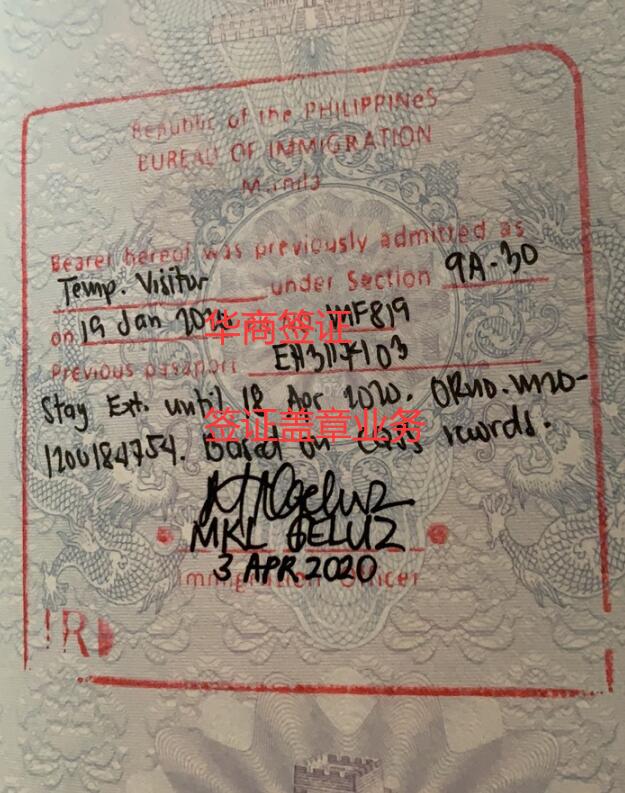 Republic of the PHILIPPINES
BUREAU OF IMMIGRATION
Manila
Bearer hereof was previously admitted as
Temp. Visitor under Section 9A-30
on 19 Jan
华商签证
MF819
Previous passport
Stay Ext. until 18 Apr 2020. OR no.
签证盖章业务
Based on records.
MKL GELUZ
3 APR 2020
Immigration Officer